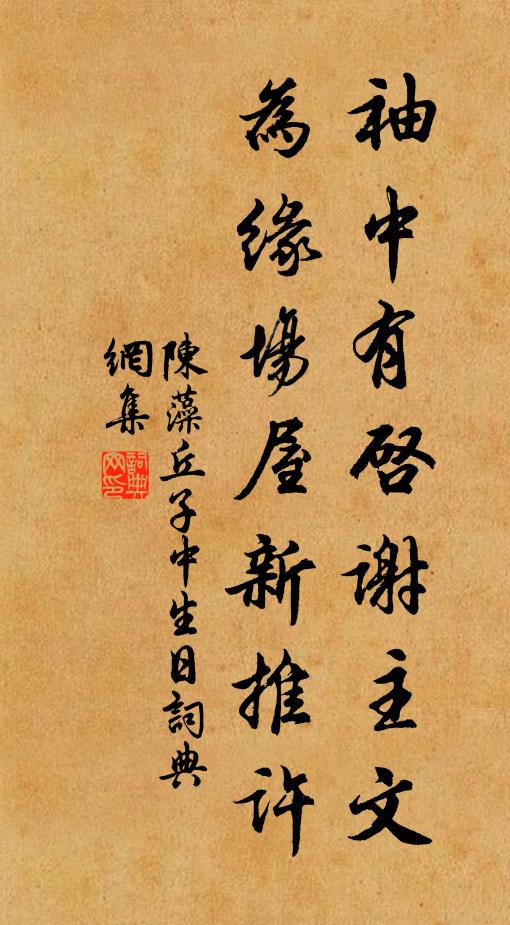 袖中有啓謝主文
為緣場屋新推許
陳藻丘子中生日詞典
網集
詞典
网印